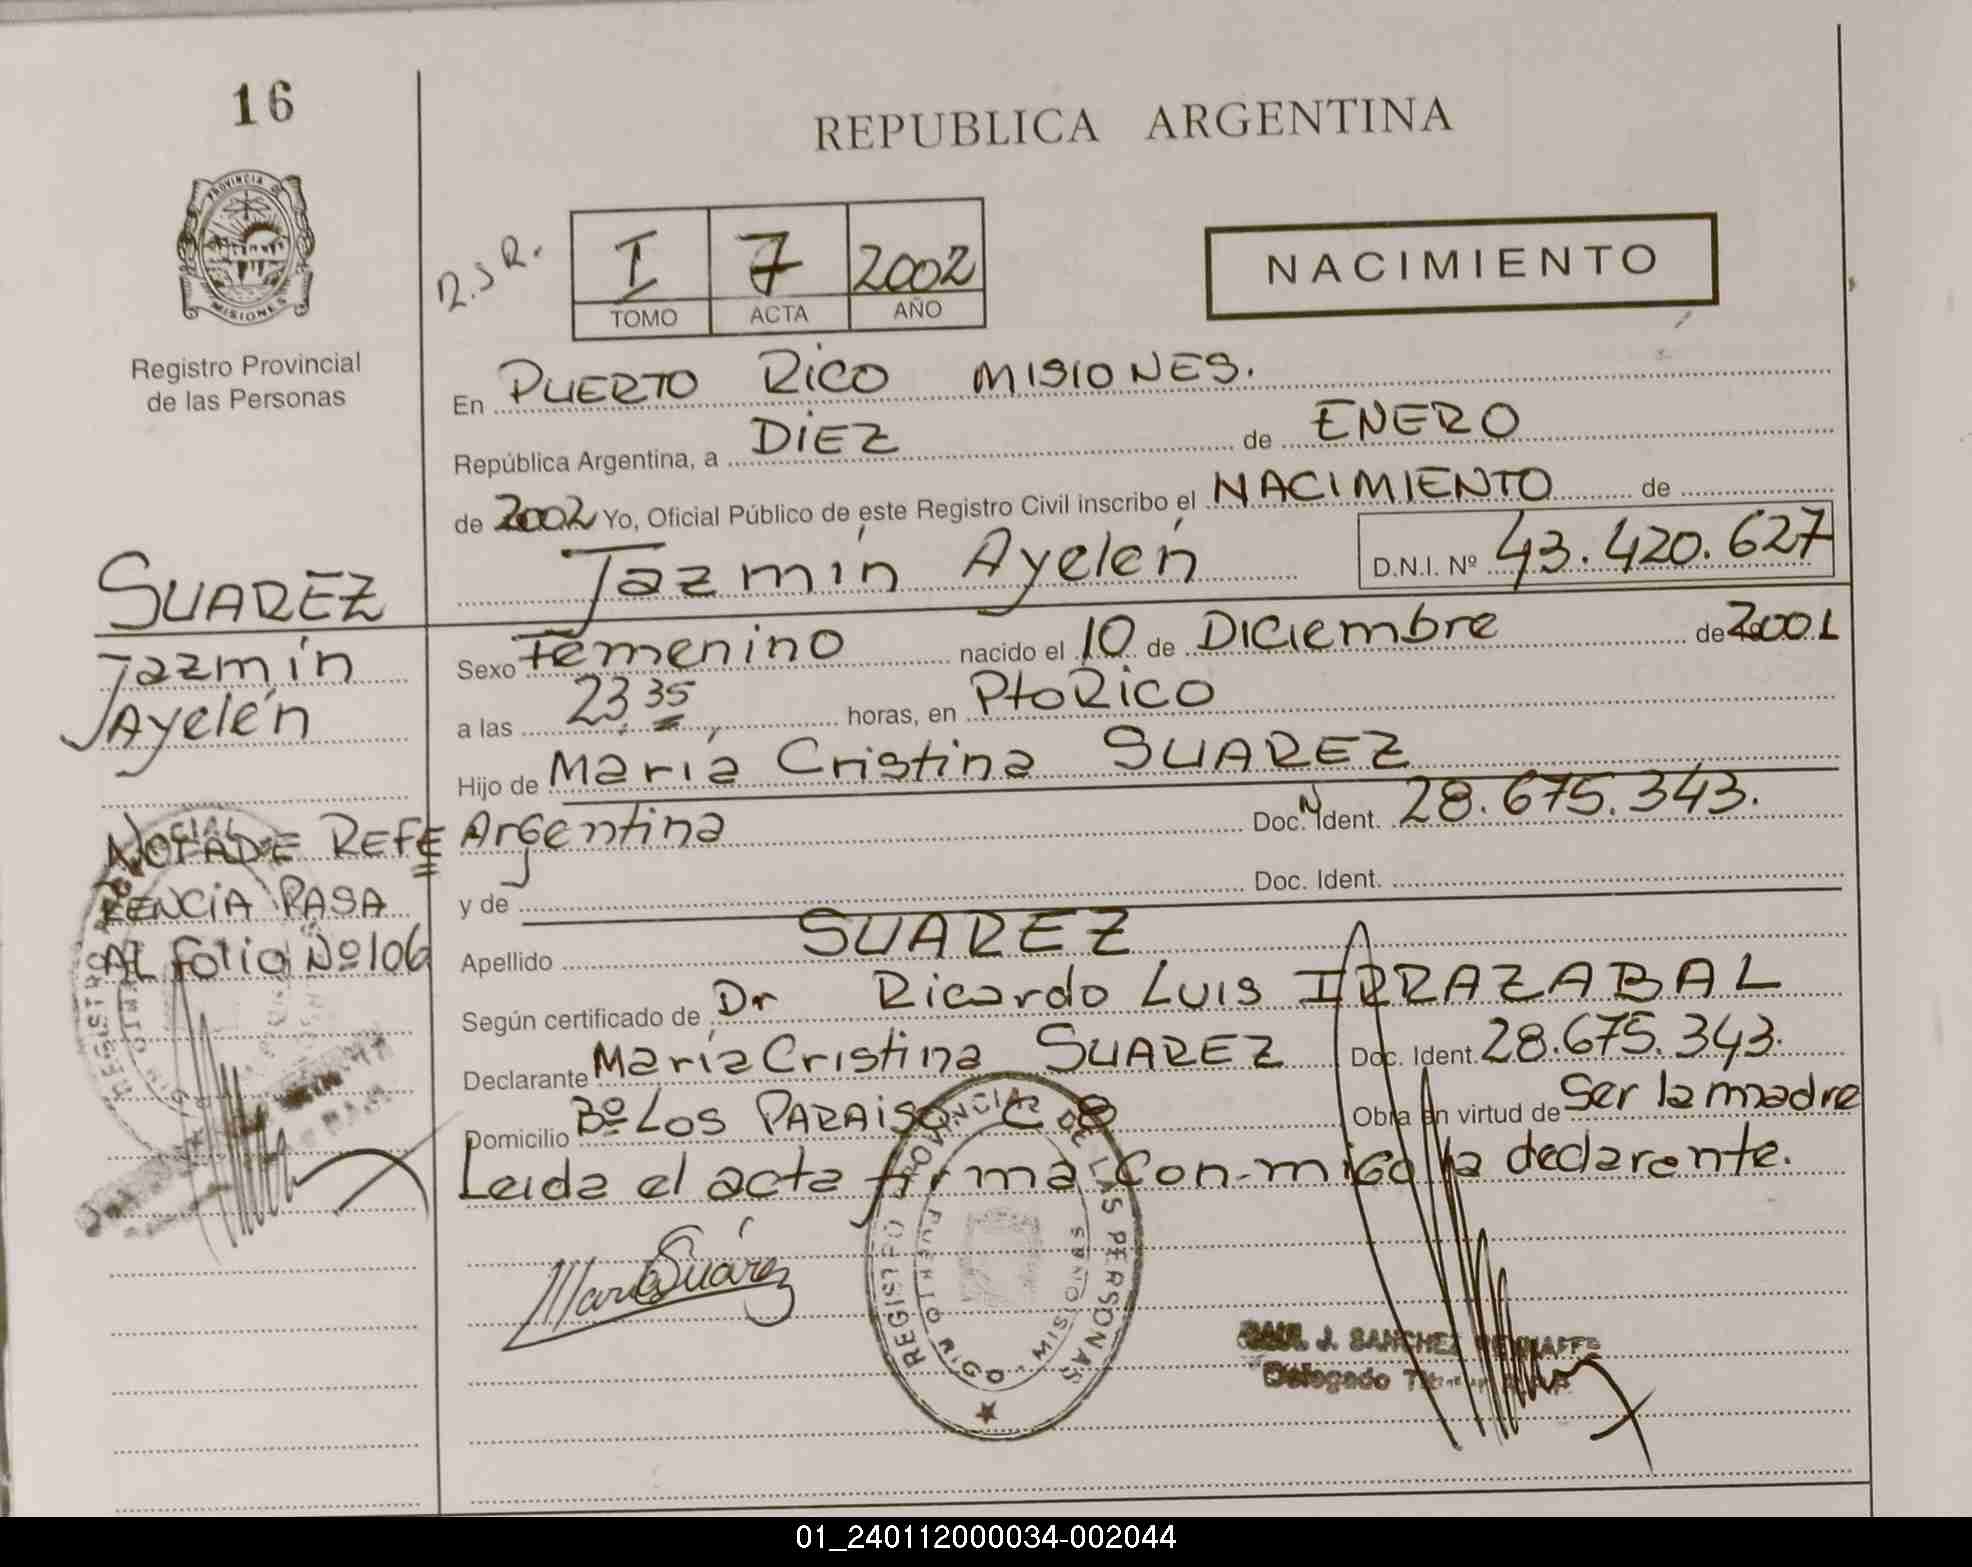 16
PROVINCIA DE
MISIONES
Registro Provincial
de las Personas
SUAREZ
Jazmín
Ayelén
NOTA DE REFE
RENCIA PASA
AL folio Nº 106
REPUBLICA ARGENTINA
R.S.R.
I 7 2002
TOMO ACTA AÑO
NACIMIENTO
En PUERTO RICO MISIONES.
República Argentina, a DIEZ de ENERO
de 2002 Yo, Oficial Público de este Registro Civil inscribo el NACIMIENTO de
Jazmín Ayelén D.N.I. Nº 43.420.627
Sexo Femenino nacido el 10 de Diciembre de 2001
a las 23 35 horas, en Pto Rico
Hijo de María Cristina SUAREZ
Argentina Doc. N Ident. 28.675.343.
y de Doc. Ident.
Apellido SUAREZ
Según certificado de Dr Ricardo Luis IRRAZABAL
Declarante María Cristina SUAREZ Doc. Ident. 28.675.343.
Domicilio Bº LOS PARAISO C 8 Obra en virtud de Ser la madre
Leida el acta firma con-migo la declarante.
María Suárez
REGISTRO PROVINCIAL DE LAS PERSONAS
PUERTO RICO - MISIONES
J. SANCHEZ
Delegado
01_240112000034-002044